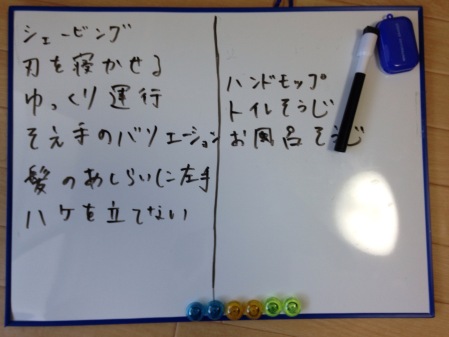 シェービング
刃を寝かせる
ゆっくり運行
そえ手のバリエーション
髪のあしらいに左手
ハケを立てない
ハンドモップ
トイレそうじ
お風呂そうじ